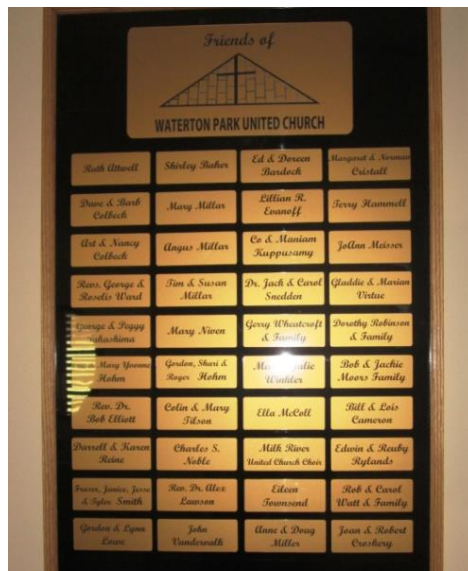 Friends of
WATERTON PARK UNITED CHURCH
Ruth Attwell
Shirley Baker
Ed & Doreen
Bardock
Margaret & Norman
Cristall
Dave & Barb
Colbeck
Mary Millar
Lillian R.
Evanoff
Terry Hammell
Art & Nancy
Colbeck
Angus Millar
Co & Maniam
Kuppusamy
JoAnn Meisser
Revs. George &
Roselis Ward
Tim & Susan
Millar
Dr. Jack & Carol
Snedden
Gladdie & Marian
Virtue
George & Peggy
Mary Niven
Gerry Wheatcroft
& Family
Dorothy Robinson
& Family
Mary Yvonne
Hohm
Gordon, Shari &
Roger Hohm
Winkler
Bob & Jackie
Moors Family
Rev. Dr.
Bob Elliott
Colin & Mary
Tilson
Ella McColl
Bill & Lois
Cameron
Darrell & Karen
Reine
Charles S.
Noble
Milk River
United Church Choir
Edwin & Reuby
Rylands
Fraser, Janice, Jesse
& Tyler Smith
Rev. Dr. Alex
Lawson
Eileen
Townsend
Rob & Carol
Watt & Family
Gordon & Lynn
Lowe
John
Vanderwalk
Anne & Doug
Miller
Joan & Robert
Croskery